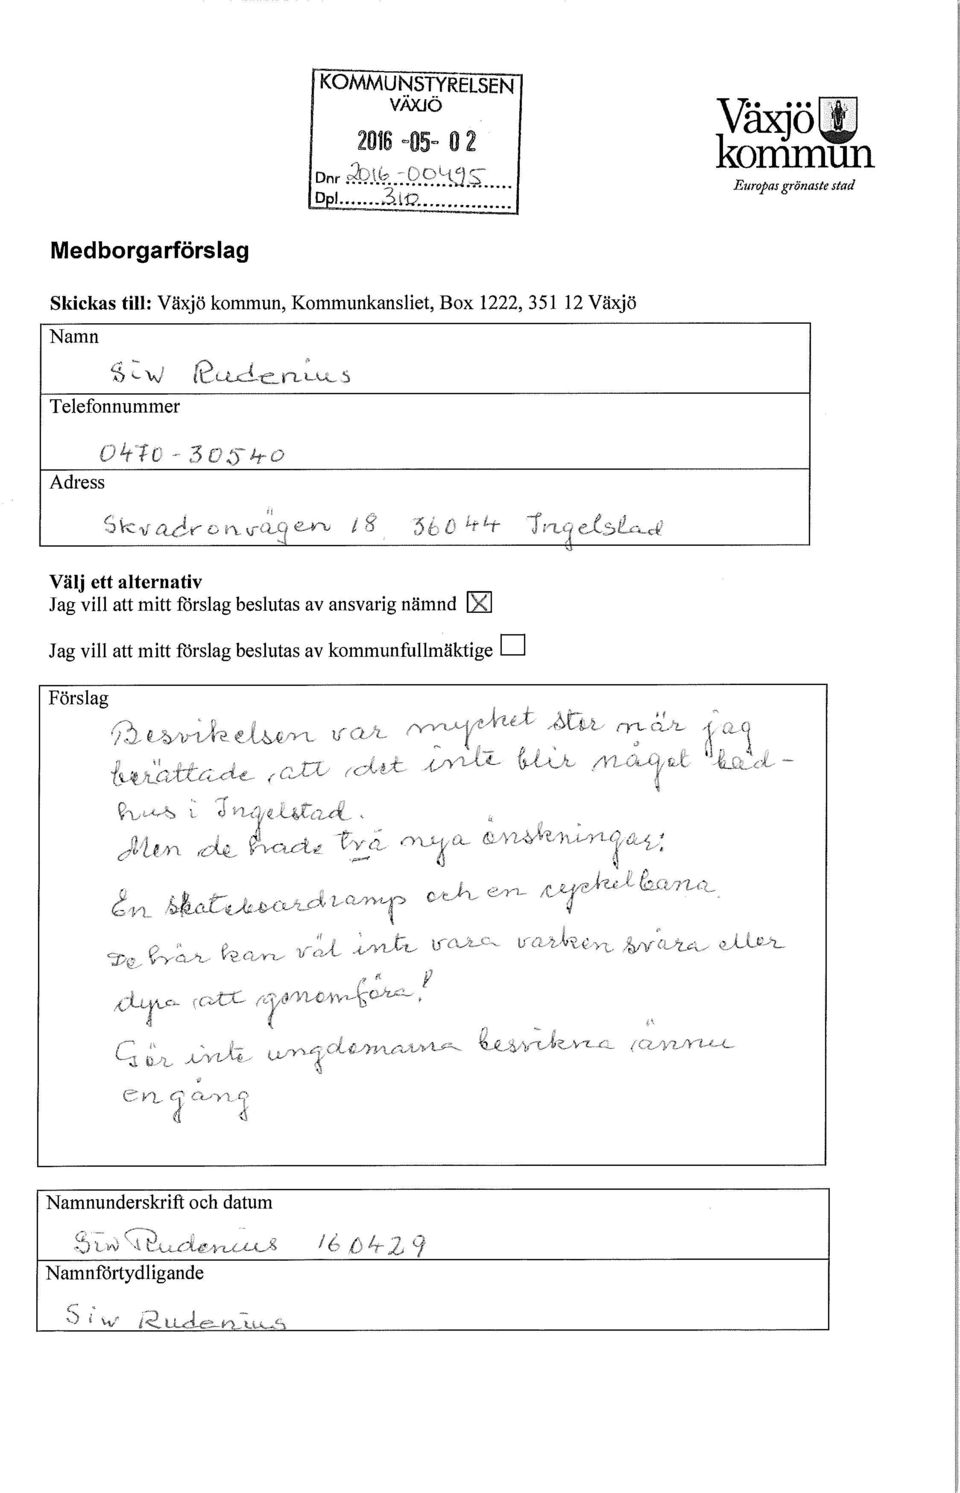 KOMMUNSTYRELSEN
VÄXJÖ
2016 -05- 02
Dnr 2016-00495
Dpl 310
Växjö
kommun
Europas grönaste stad
Medborgarförslag
Skickas till: Växjö kommun, Kommunkansliet, Box 1222, 351 12 Växjö
Namn
Siw Rudenius
Telefonnummer
0470 - 30540
Adress
Skvadronvägen 18 36044 Ingelstad
Välj ett alternativ
Jag vill att mitt förslag beslutas av ansvarig nämnd ☒
Jag vill att mitt förslag beslutas av kommunfullmäktige ☐
Förslag
Besvikelsen var mycket stor när jag
berättade, att det inte blir något bad-
hus i Ingelstad.
Men de hade två nya önskningar:
En skateboardramp och en cyckelbana.
De här kan väl inte vara varken svåra eller
dyra att genomföra!
Gör inte ungdomarna besvikna ännu
en gång
Namnunderskrift och datum
Siw Rudenius 160429
Namnförtydligande
Siw Rudenius